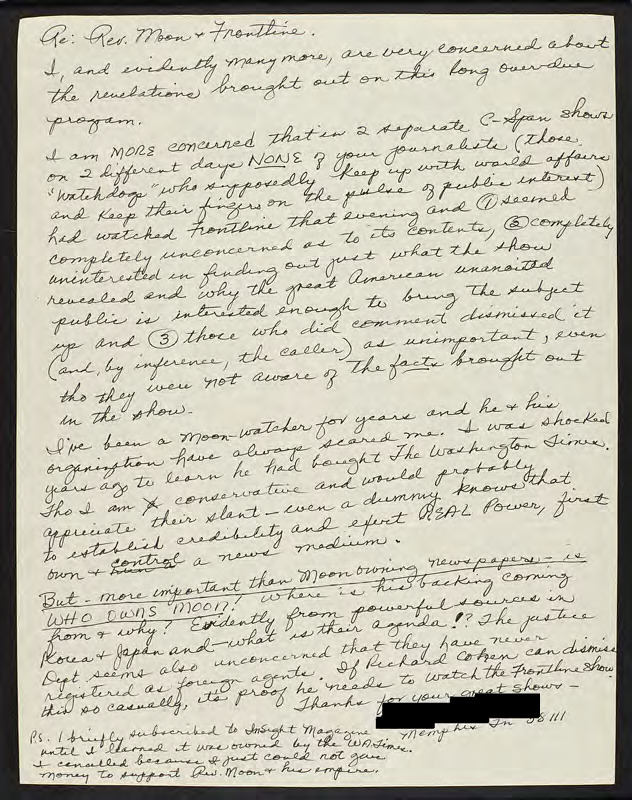 Re: Rev. Moon & Frontline.
I, and evidently many more, are very concerned about
the revelations brought out on this long overdue
program.
I am MORE concerned that in 2 separate C-Span shows
on 2 different days NONE of your journalists (those
"watchdogs" who supposedly keep up with world affairs
and keep their fingers on the pulse of public interest)
had watched Frontline that evening and ① seemed
completely unconcerned as to its contents, ② completely
uninterested in finding out just what the show
revealed and why the great American unanointed
public is interested enough to bring the subject
up and ③ those who did comment dismissed it
(and, by inference, the caller) as unimportant, even
tho they were not aware of the facts brought out
in the show.
I've been a Moon-watcher for years and he & his
organization have always scared me. I was shocked
years ago to learn he had bought The Washington Times.
Tho I am conservative and would probably
appreciate their slant - even a dummy knows that
to establish credibility and exert REAL Power, first
own & control a news medium.
But - more important than Moon owning newspapers - is
WHO OWNS MOON? Where is his backing coming
from & why? Evidently from powerful sources in
Korea & Japan and - what is their agenda!? The justice
Dept seems also unconcerned that they have never
registered as foreign agents. If Richard Cohen can dismiss
this so casually, it's proof he needs to watch the Frontline show.
Thanks for your great shows -
Memphis Tn 38111
P.S. I briefly subscribed to Insight Magazine
until I learned it was owned by the WA Times.
I cancelled because I just could not give
money to support Rev. Moon & his empire.